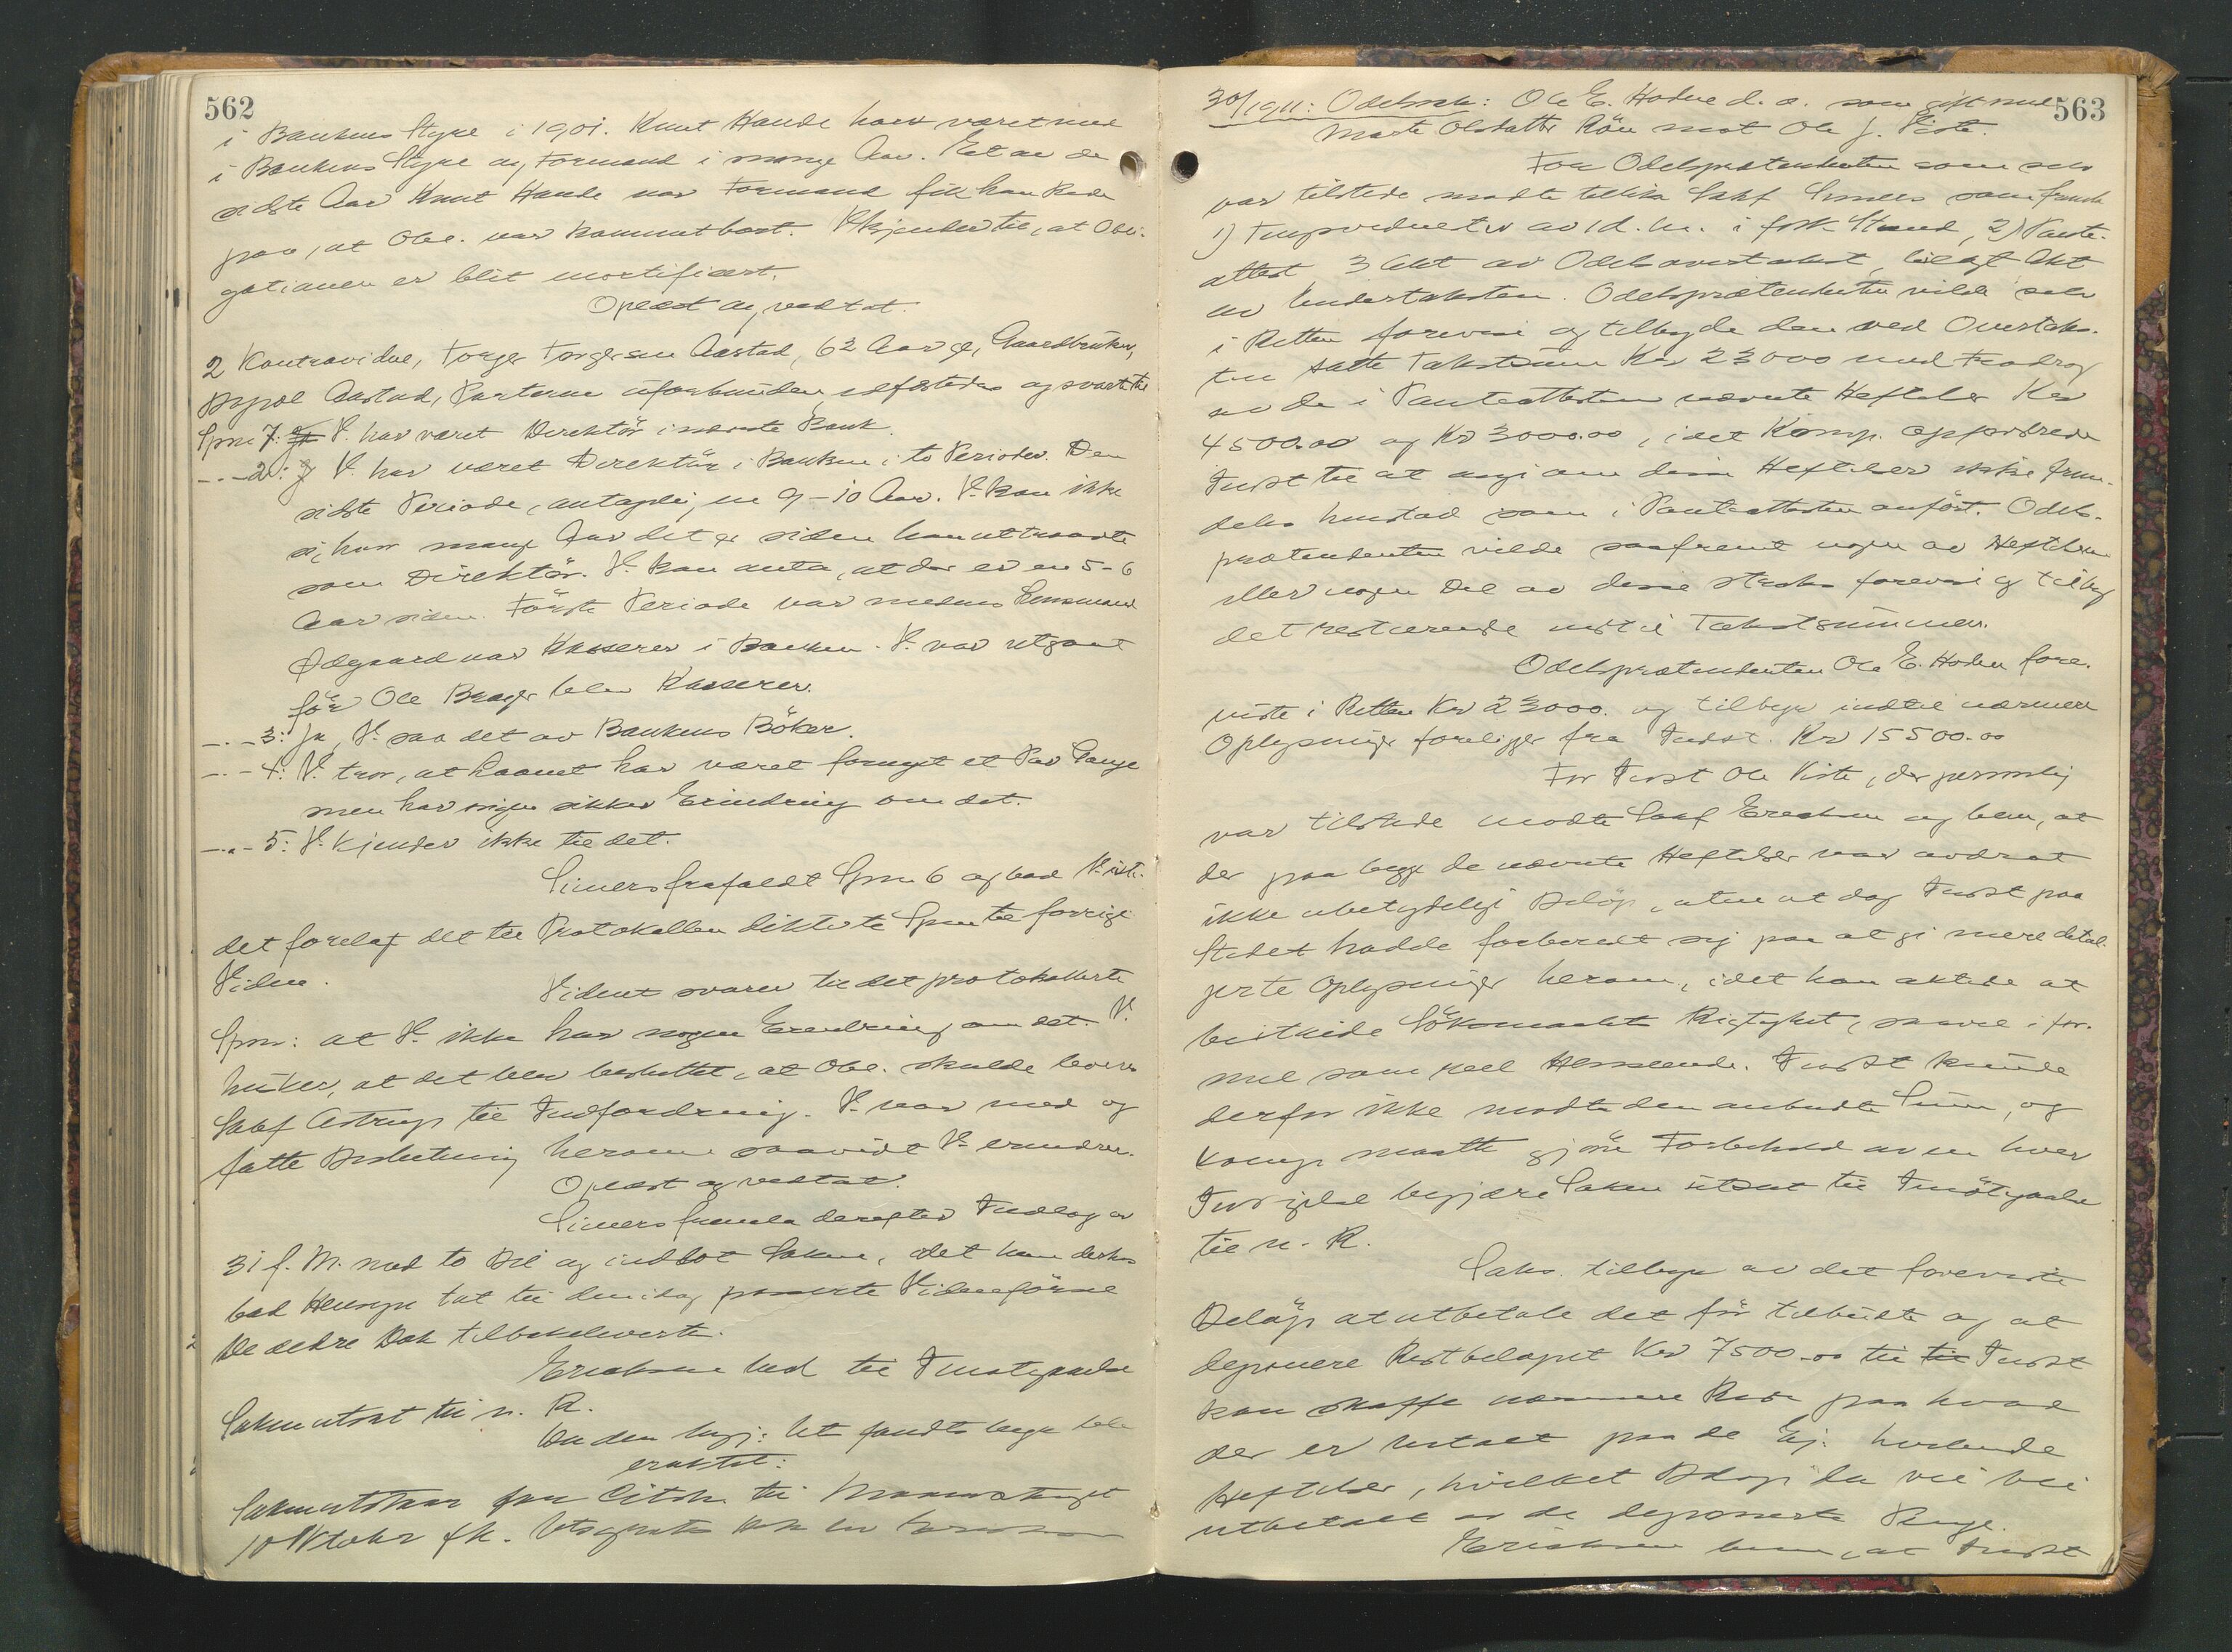 562
i Bankens Styre i 1901. Knut Hande har været med
i Bankens Styre og Formand i mange Aar. Et av de
sidste Aar Knut Hande var Formand fik han Rede
paa, at Obl. var kommet bort. V. kjender til, at Obli-
gationen er blit mortificert.
Oplæst og vedtat.
2 Kontravidne, Torger Torgersen Aastad, 62 Aar gl, Gaardbruker,
Bopæl Aastad, Parterne uforbunden, edfæstedes og svarte til
Spm 1: V. har været Direktör i nævnte Bank.
-"- 2: V. har været Direktör i Banken i to Perioder. Den
sidste Periode, antagelig en 9-10 Aar. V. kan ikke
si, hvor mange Aar det er siden han uttraadte
som Direktör. V. kan anta, at der er en 5-6
Aar siden. Förste Periode var medens Lensmand
Ödegaard var Kasserer i Banken. V. var utgaat
för Ole Brager blev Kasserer.
-"- 3: Ja, V. saa det av Bankens Böker.
-"- 4: V. tror, at Laanet har været fornyet et Par Gange
men har ingen sikker Erindring om det.
-"- 5: V. kjender ikke til det.
Simers frafaldt Spm 6 og bad
det forelagt det til Protokollen dikterte Spm til forrige
Vidne.
Vidnet svarer til det protokollerte
Spm: at V. ikke har nogen Erindring om det. V.
husker, at det blev besluttet, at Obl. skulde leveres
Sakf Astrup til Indfordring. V. var med og
fatte Beslutning herom saavidt V. erindrer.
Oplæst og vedtat.
Simers fremla derefter Indlæg av
31 f. M. med to Bil og indlot Saken, idet han derhos
bad Hensyn tat til den idag passerte Vidneförsel
De ældre Dok tilbakeleverte.
Eriksen bad til Imötegaaelse
Saken utsat til n. R.
Da den begj: Uts fandts begr blev
eraktet:
Saken utstaar fra Citdn til Maanedstinget
10 Oktober fk.
563
30/1911: Odelssak: Ole E. Hodne d. o. som gift med
Marte Olsdatter Rön mot Ole J. Viste.
For Odelsprætendenten som selv
var tilstede mödte tillike Sakf Simers som freml
1) Imp. av 1 d. M. i fork Stand, 2) Pante-
attest 3 Akt av Odelsovertakst, bilagt Akt
av Undertaksten. Odelsprætendenten vilde selv
i Retten forevise og tilbyde den ved Overtaks-
ten satte Takstsum Kr 23000 med Fradrag
av de i Panteattesten nævnte Heftelser Kr
4500.00 og Kr 3000.00, idet Komp. opfordrede
Indst til at angi om disse Heftelser ikke frem-
deles henstod som i Panteattesten anfört. Odels-
prætendenten vilde saafremt nogen av Heftelserne
eller nogen Del av disse straks forevise og tilby
det resterende indtil Takstsummen.
Odelsprætendenten Ole E. Hodne fore-
viste i Retten Kr 23000. og tilbyr indtil nærmere
Oplysninger foreligger fra Indst. Kr 15500.00
For Indst Ole Viste, der personlig
var tilstede mödte Sakf Eriksen og bem, at
der paa begge de nævnte Heftelser var avdrat
ikke ubetydelige Belöp, uten at dog Indst paa
Stedet hadde forberedt sig paa at gi mere detal-
jerte Oplysninger herom, idet han aktede at
bestride Söksmaalets Rigtighet, saavel i for-
mel som reel Henseende. Indst kunde
derfor ikke motta den anbudte Sum, og
Komp maatte gjöre Forbehold av en hver
Indsigelse begjære Saken utsat til Imötegaaelse
til n. R.
Saks. tilbyr av det foreviste
Belöp at utbetale det för tilbudte og at
deponere Restbelöpet Kr 7500.00 til Indst
kan skaffe nærmere Rede paa hvad
der er betalt paa de Ej. heftende
Heftelser, hvilket Belöp da vil bli
utbetalt av de deponerte Penge.
Eriksen bem, at Indst